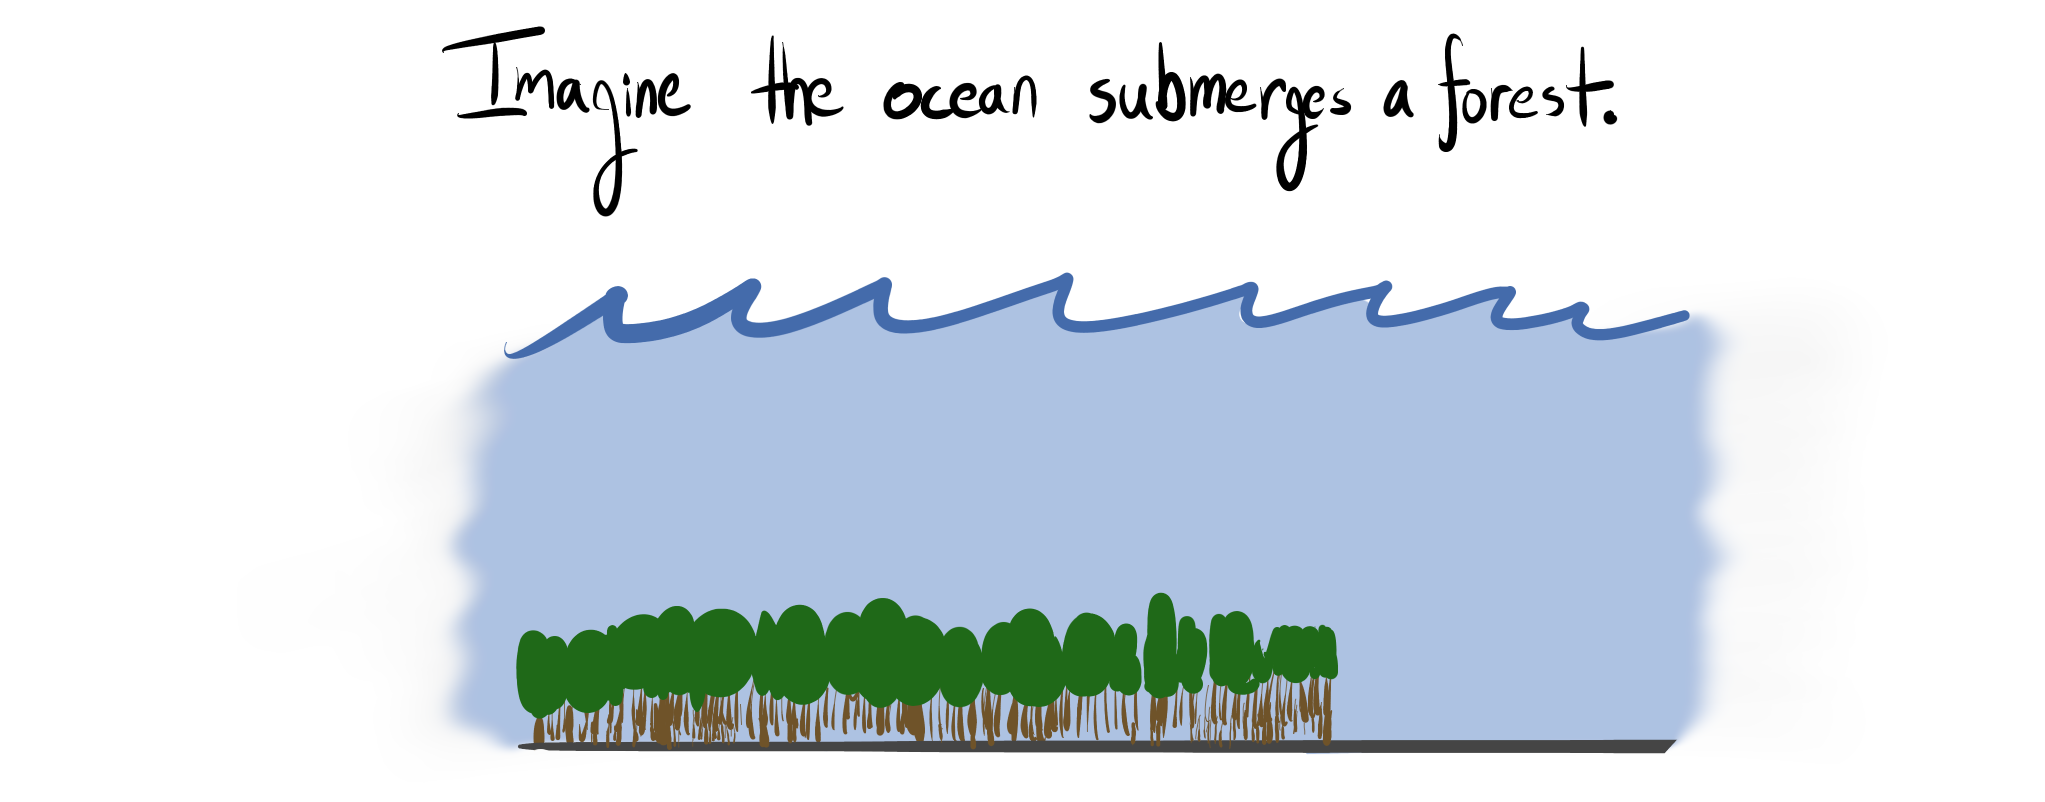 Imagine the ocean submerges a forest.